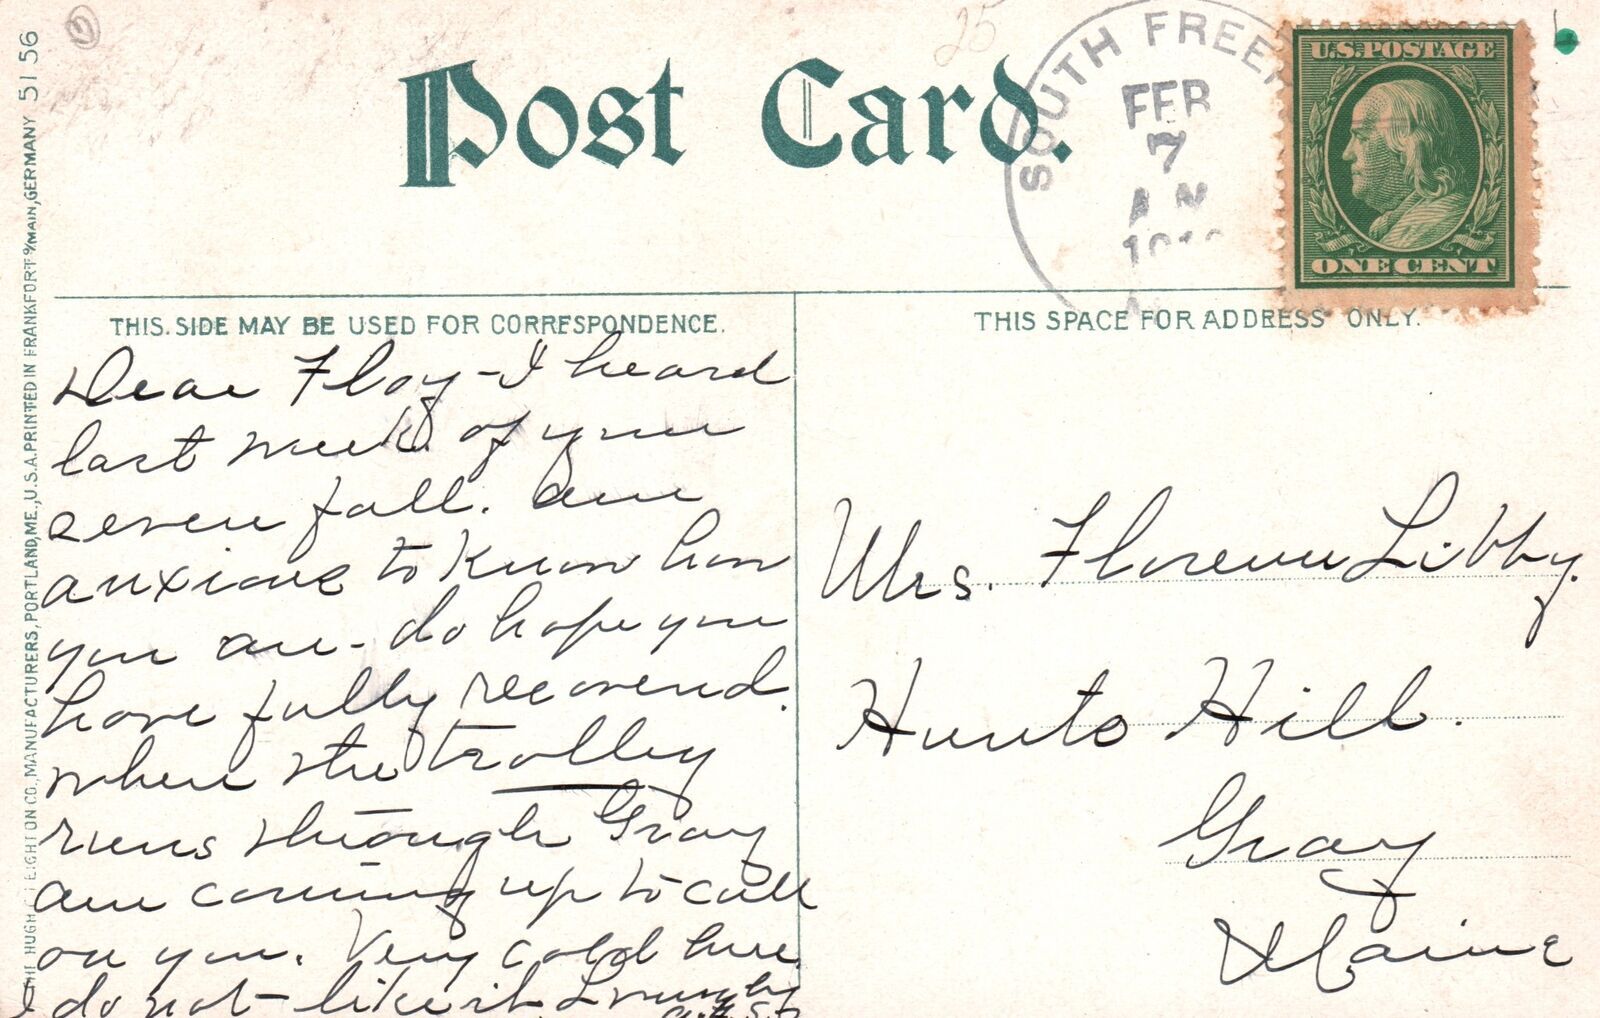 Post Card.
SOUTH FREE
FEB
7
A M
191
U.S. POSTAGE
ONE CENT
25
THIS SIDE MAY BE USED FOR CORRESPONDENCE.
THIS SPACE FOR ADDRESS ONLY.
Dear Floy - I heard
last week of your
severe fall. am
anxious to know how
you are - do hope you
have fully recovered.
when the trolley
runs through Gray
am coming up to call
on you. Very cold here
I do not like it. Lovingly
Mrs. Florence Libby.
Hunts Hill.
Gray
Maine
THE HUGH C. LEIGHTON CO., MANUFACTURERS, PORTLAND, ME., U.S.A. PRINTED IN FRANKFORT o/MAIN, GERMANY 5156